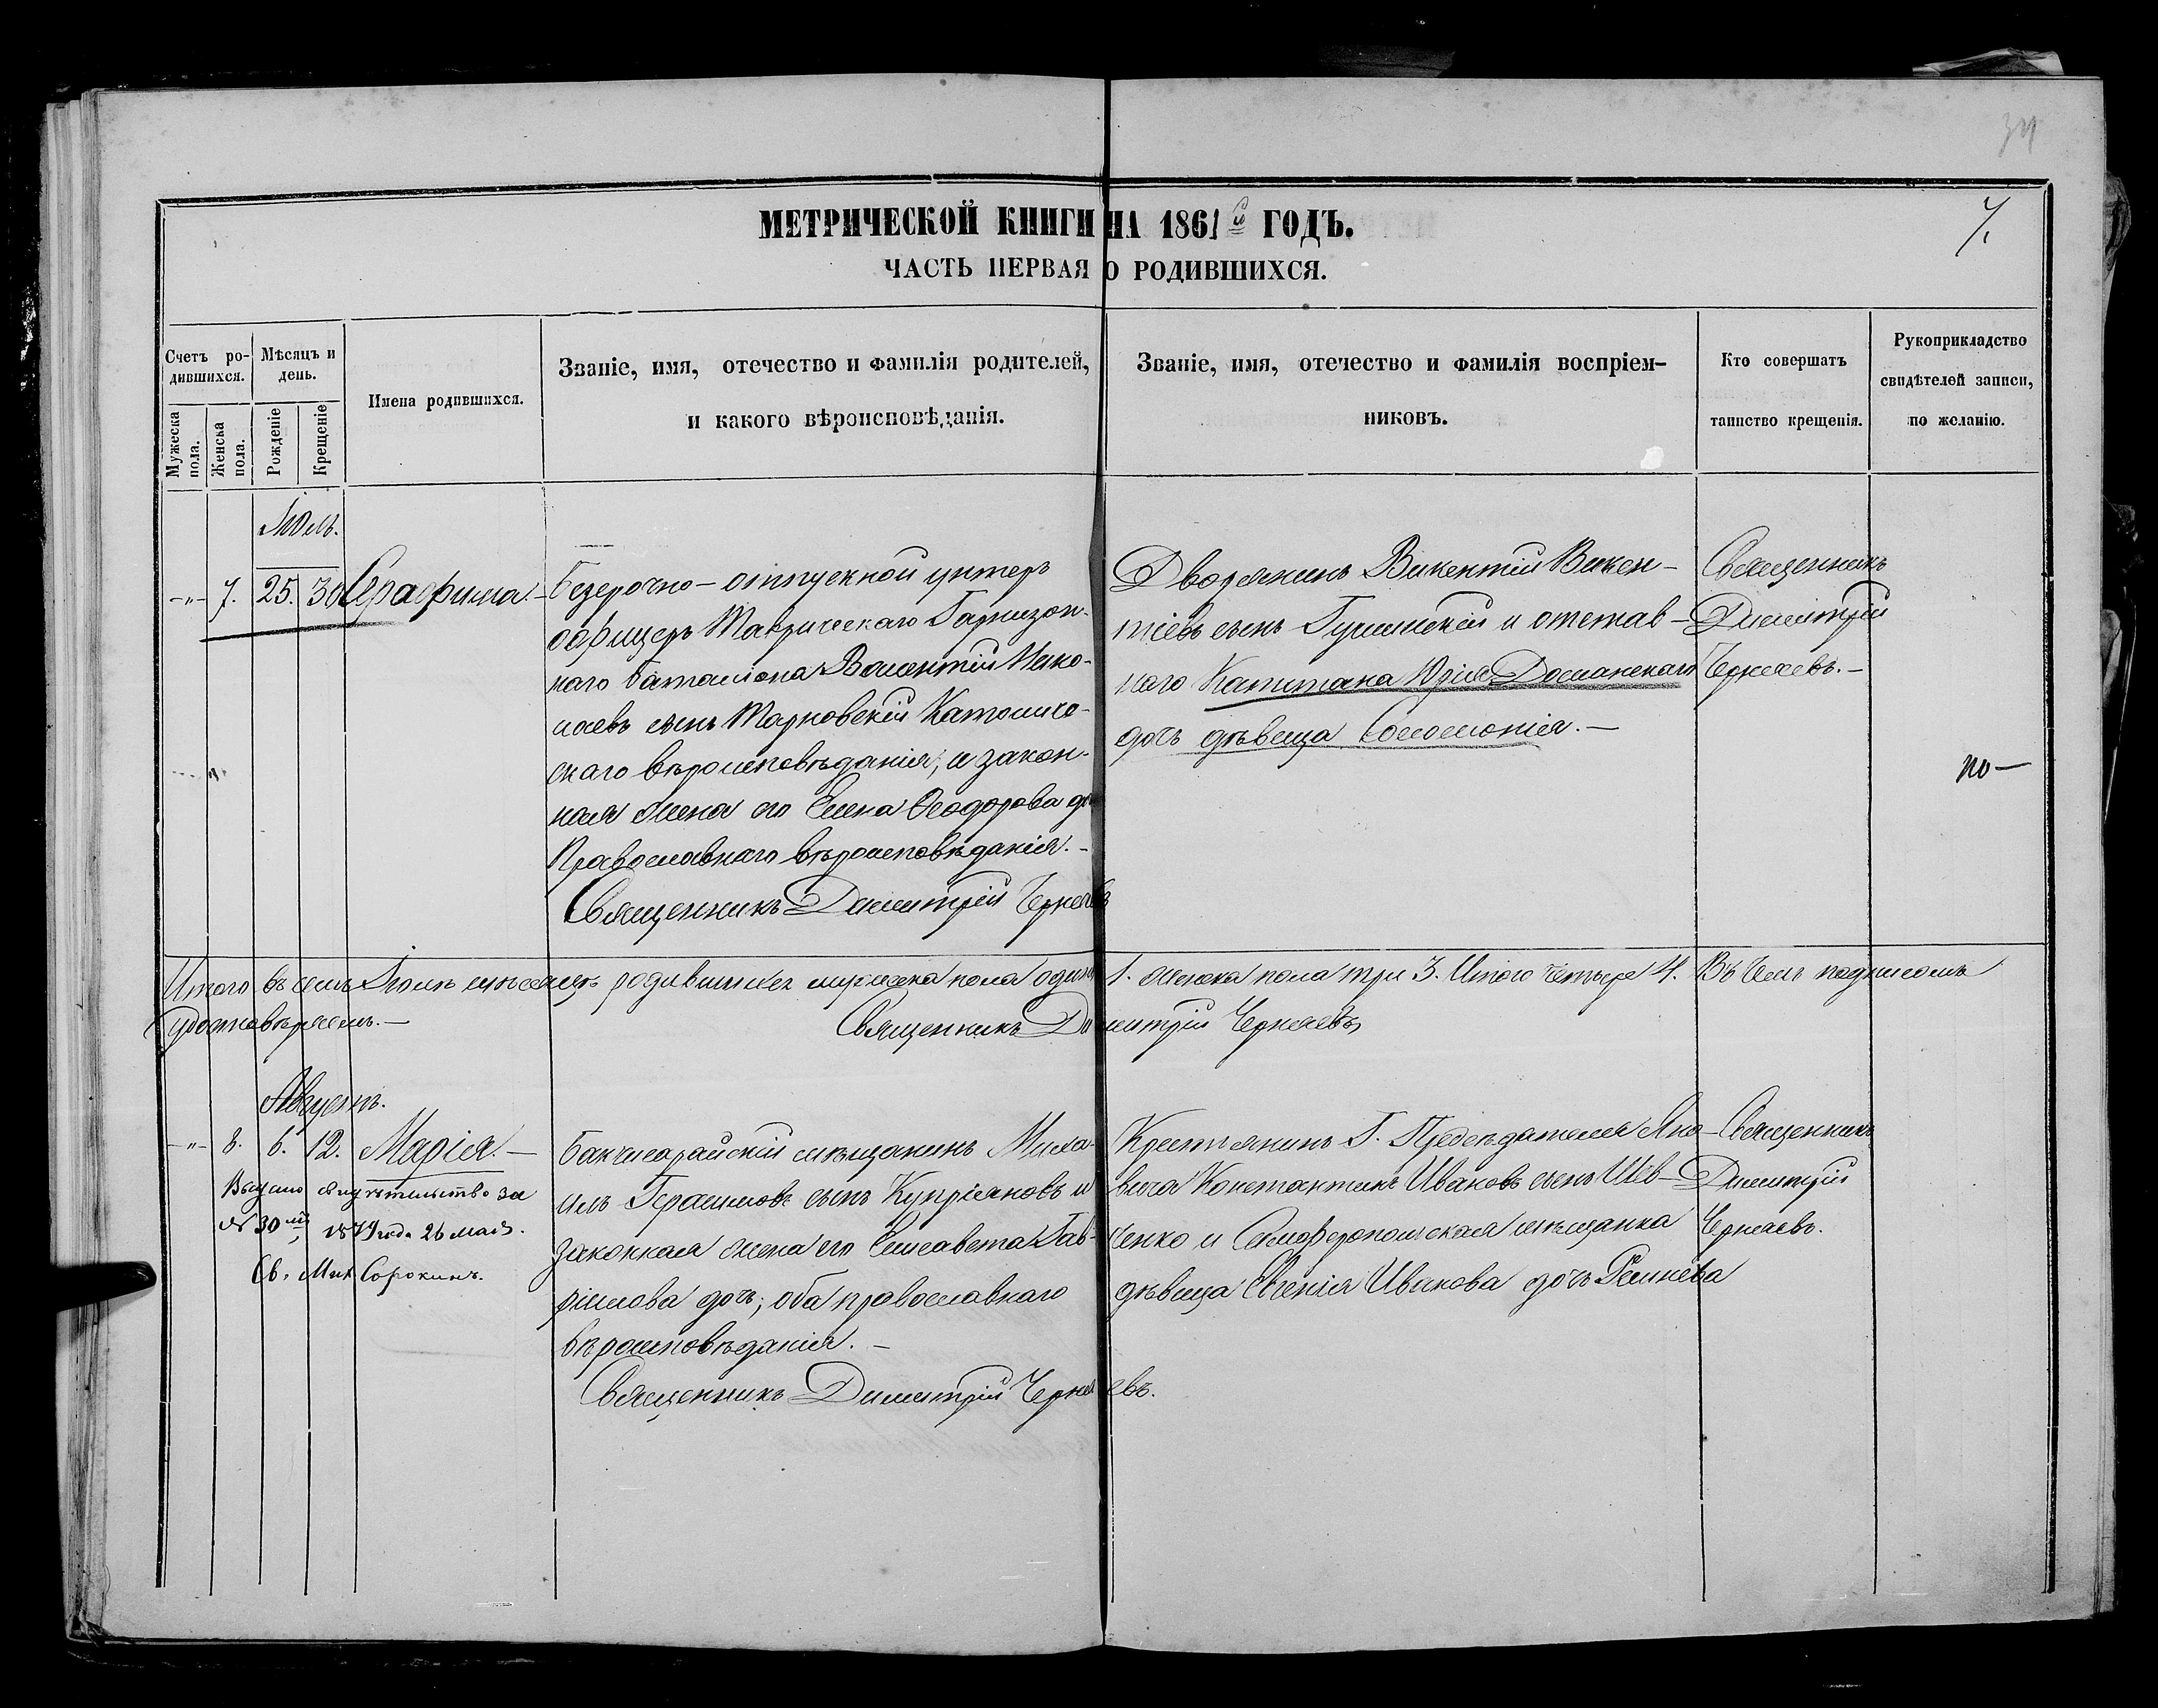 34
МЕТРИЧЕСКОЙ КНИГИ НА 1861й ГОДЪ.
7.
ЧАСТЬ ПЕРВАЯ О РОДИВШИХСЯ.
Счетъ ро-
дившихся.
Мужеска пола.
Женска пола.
Мѣсяцъ и
день.
Рожденіе
Крещеніе
Имена родившихся.
Званіе, имя, отечество и фамилія родителей,
и какого вѣроисповѣданія.
Званіе, имя, отечество и фамилія воспріем-
никовъ.
Кто совершатъ
таинство крещенія.
Рукоприкладство
свидѣтелей записи,
по желанію.
Іюль.
-"- 7. 25. 30 Серафима.-
Безсрочно-отпускной унтеръ
офицеръ Таврическаго Гарнизон-
наго баталіона Валентій Нико-
лаевъ сынъ Тарновскій Католиче-
скаго вѣроисповѣданія, и закон-
ная жена его Елена Ѳеодорова доч
Православнаго вѣроисповѣданія.-
Священникъ Димитрій Черняевъ
Дворянинъ Викентій Викен-
тіевъ сынъ Гушинскій и отстав-
наго Капитана Юрія Досманскаго
дочь дѣвица Соломонія.-
Священникъ
Димитрій
Черняевъ.-
по-
Итого въ семъ Іюлѣ мѣсяцѣ родившихся мужеска пола одинъ 1. женска пола три 3. Итого четыре 4. Въ чемъ подписомъ
удостовѣряемъ.-
Священникъ Димитрій Черняевъ
Августъ.
-"- 8. 6. 12. Марія.-
Выдано свидѣтельство за
№ 30мъ, 1879 года 26 мая.
Св. Мих Сорокинъ.
Бахчисарайскій мѣщанинъ Миха-
илъ Герасимовъ сынъ Купріяновъ и
законная жена его Елисавета Гав-
ріилова дочь, оба православнаго
вѣроисповѣданія.-
Священникъ Димитрій Черняевъ.
Крестьянинъ Г. Предсѣдателя Яно-
вича Константинъ Ивановъ сынъ Шев-
ченко и Симферопольская мѣщанка
дѣвица Евгенія Иванова дочь Реннева
Священникъ
Димитрій
Черняевъ.